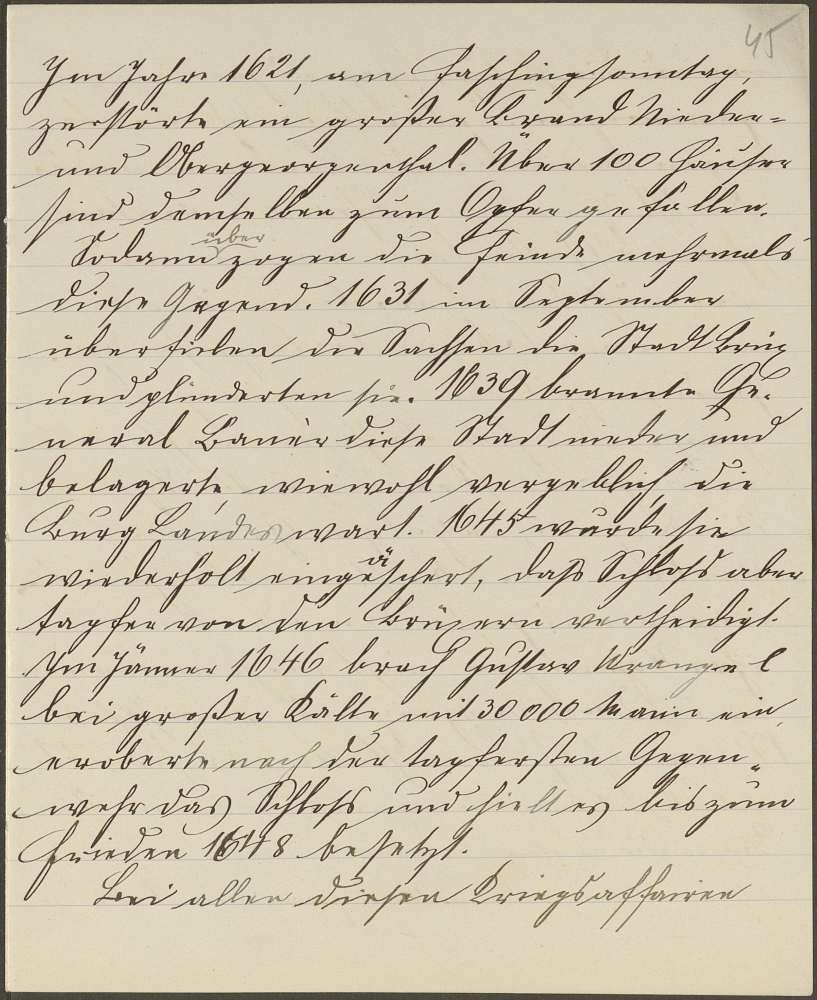 45
Im Jahre 1621, am Faschingsonntag,
zerstörte ein großer Brand Nieder-
und Obergeorgenthal. Über 100 Häuser
sind demselben zum Opfer gefallen.
über
Sodann zogen die Feinde mehrmals
diese Gegend. 1631 im September
überfielen die Sachsen die Stadt Brüx
und plünderten sie. 1639 brannte Ge-
neral Banèr diese Stadt nieder und
belagerte, wiewohl vergeblich, die
Burg Landeswart. 1645 wurde sie
wiederholt eingeäschert, daß Schloß aber
tapfer von den Brüxern vertheidigt.
Im Jänner 1646 brach Gustav Wrangel
bei großer Kälte mit 30 000 Mann ein,
eroberte nach der tapfersten Gegen-
wehr das Schloß und hielt es bis zum
Frieden 1648 besetzt.
Bei allen diesen Kriegsaffairen